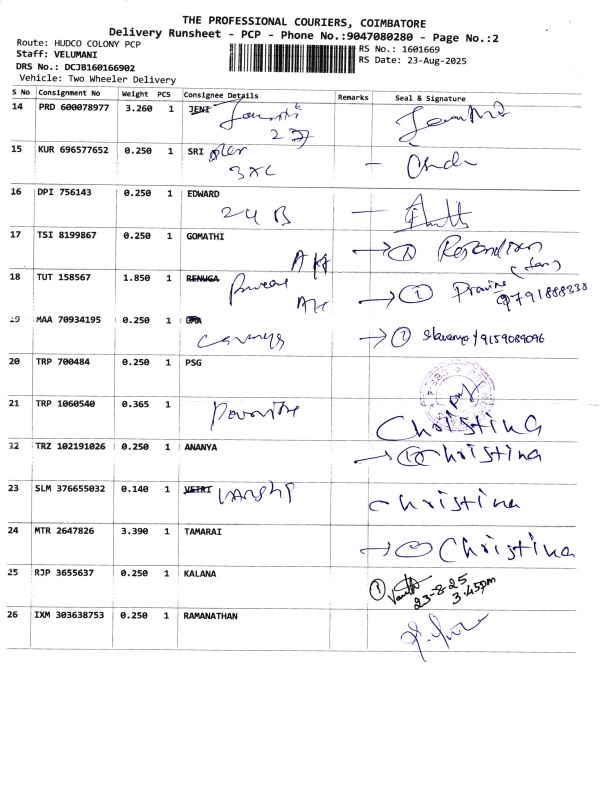 THE PROFESSIONAL COURIERS, COIMBATORE
Delivery Runsheet - PCP - Phone No.:9047080280 - Page No.:2
Route: HUDCO COLONY PCP
Staff: VELUMANI
DRS No.: DCJB160166902
Vehicle: Two Wheeler Delivery
RS No.: 1601669
RS Date: 23-Aug-2025
S No Consignment No Weight PCS Consignee Details Remarks Seal & Signature
14 PRD 600078977 3.260 1 JENI
15 KUR 696577652 0.250 1 SRI
3XL
16 DPI 756143 0.250 1 EDWARD
24 B
17 TSI 8199867 0.250 1 GOMATHI
18 TUT 158567 1.850 1 RENUGA
1 9791888338
19 MAA 70934195 0.250 1
1 9159089096
20 TRP 700484 0.250 1 PSG
21 TRP 1060540 0.365 1
Christina
22 TRZ 102191026 0.250 1 ANANYA
Christina
23 SLM 376655032 0.140 1 VETRI
Christina
24 MTR 2647826 3.390 1 TAMARAI
Christina
25 RJP 3655637 0.250 1 KALANA
1
23-8-25
3.45pm
26 IXM 303638753 0.250 1 RAMANATHAN